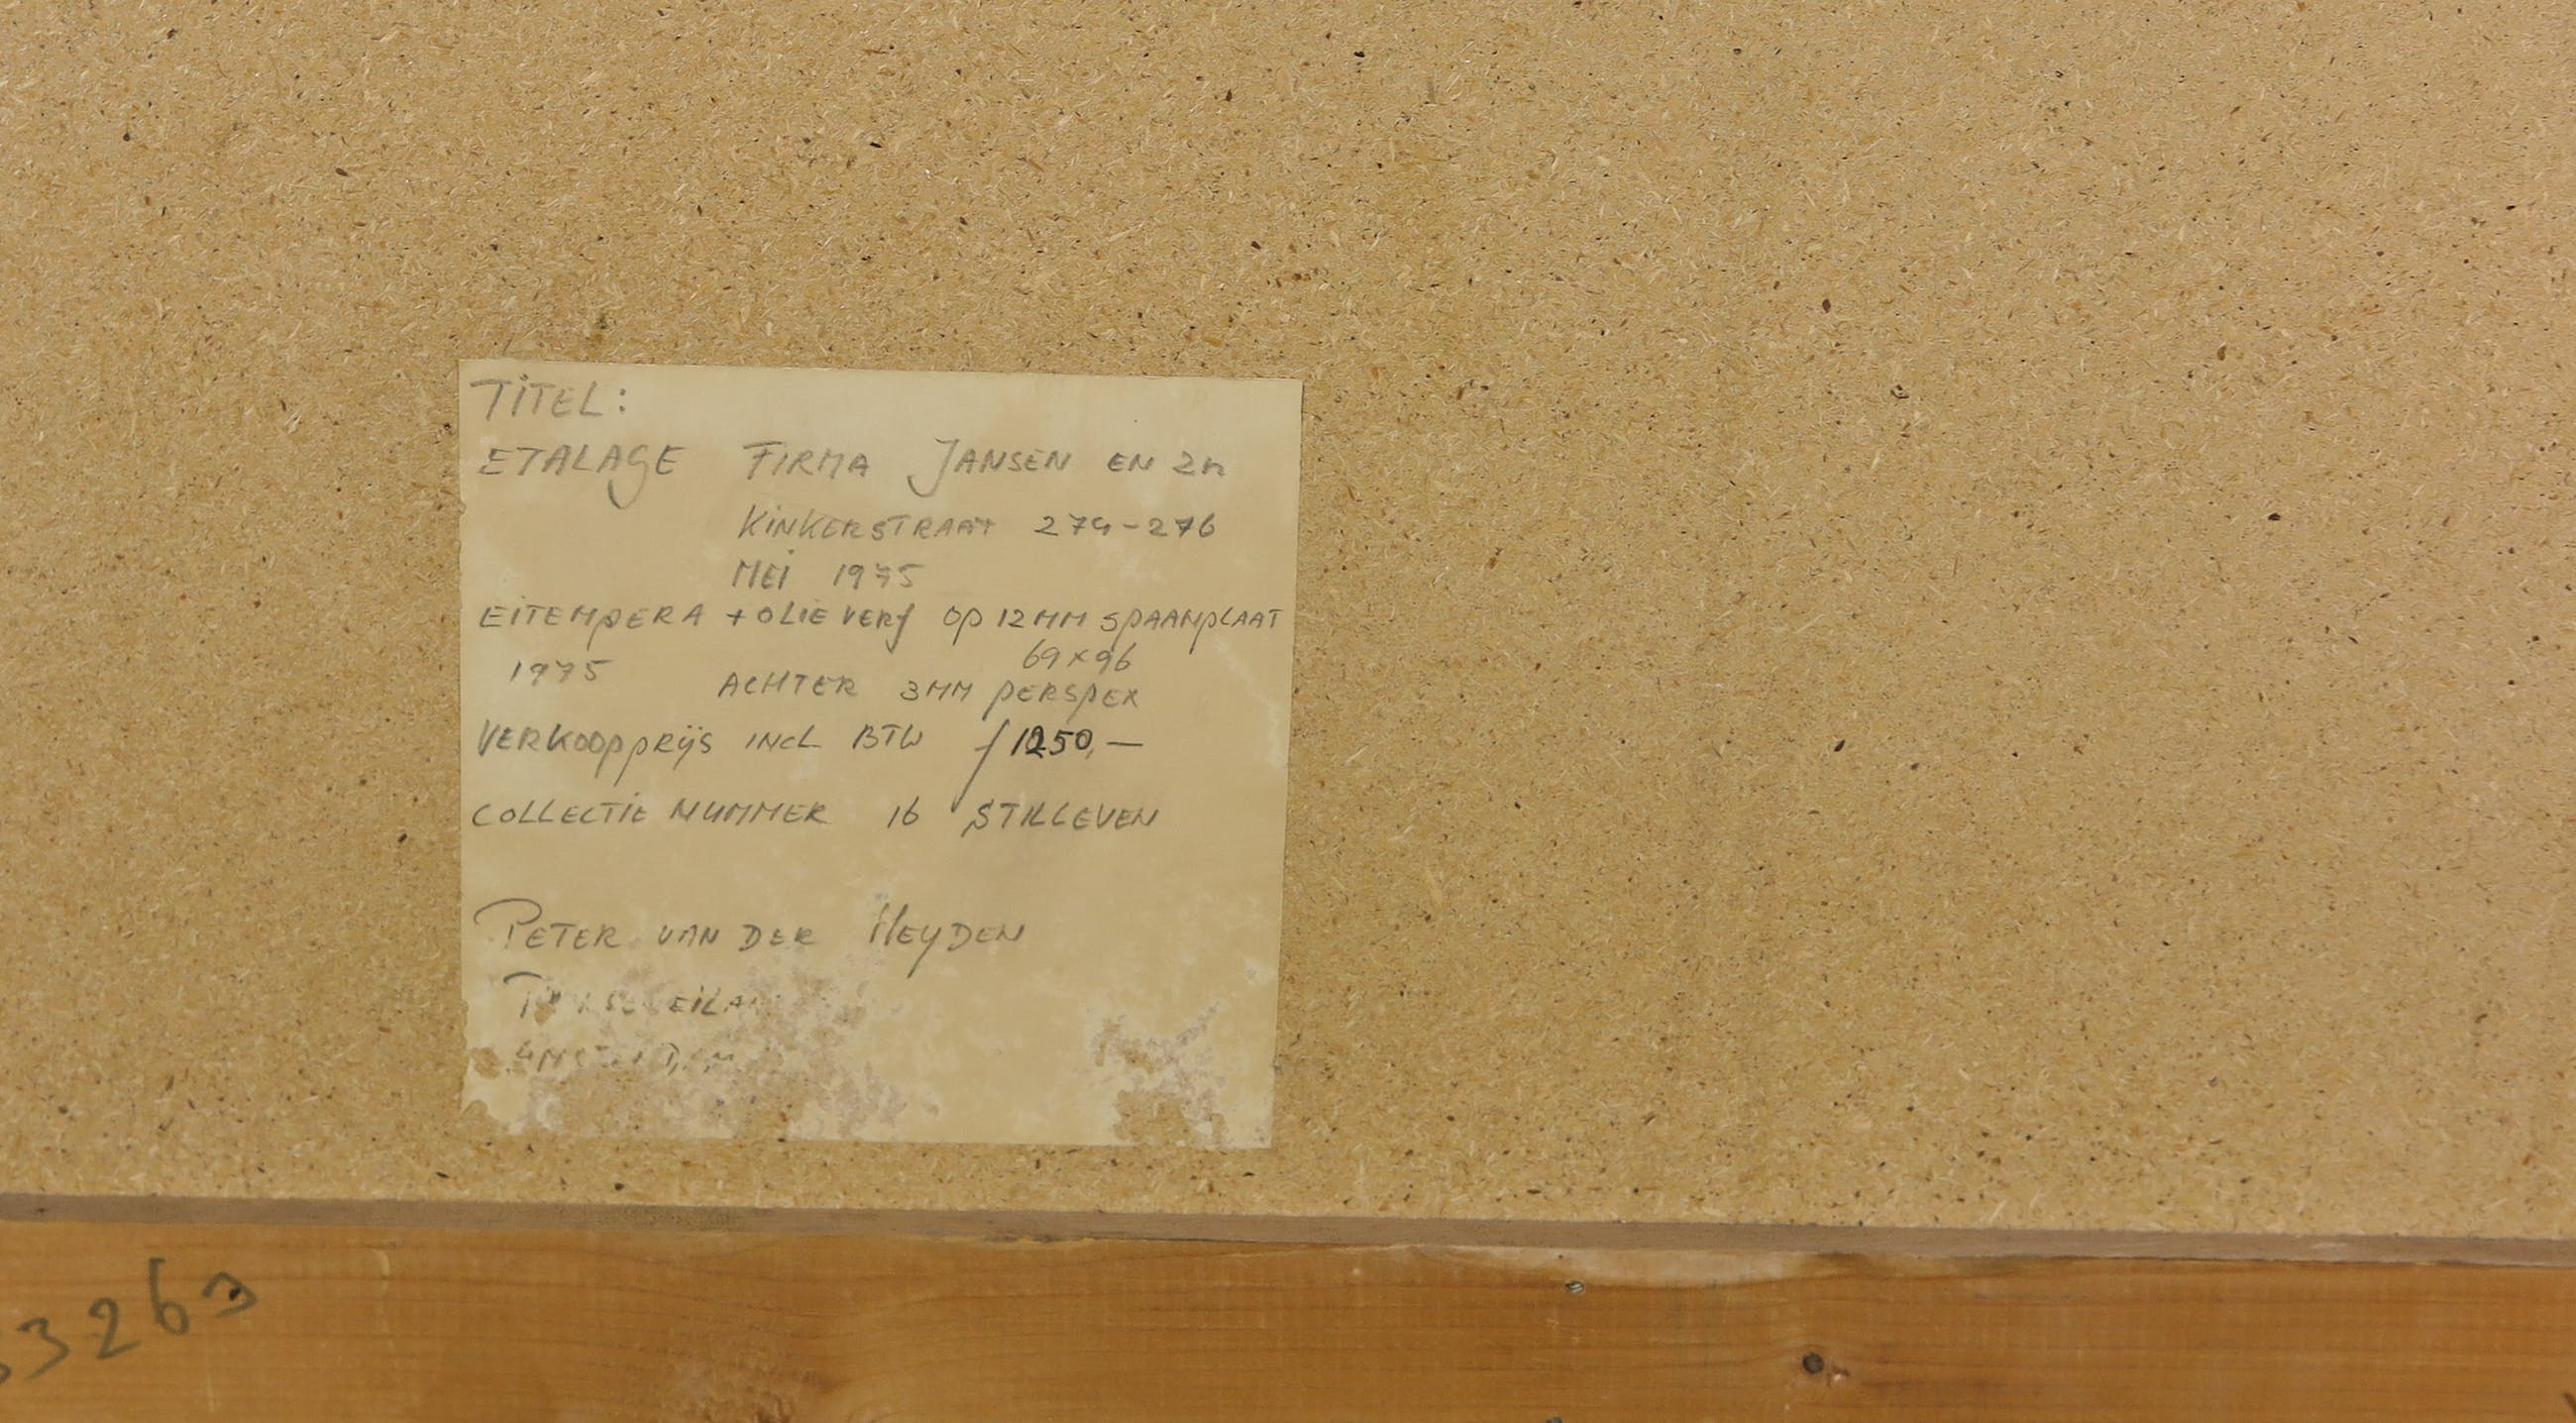 TITEL:
ETALAGE FIRMA JANSEN EN ZN
KINKERSTRAAT 274-276
MEI 1975
EITEMPERA + OLIEVERF OP 12 MM SPAANPLAAT
69 x 96
1975 ACHTER 3 MM PERSPEX
VERKOOPPRIJS INCL BTW f 1250,—
COLLECTIE NUMMER 16 STILLEVEN
PETER VAN DER HEYDEN
3263